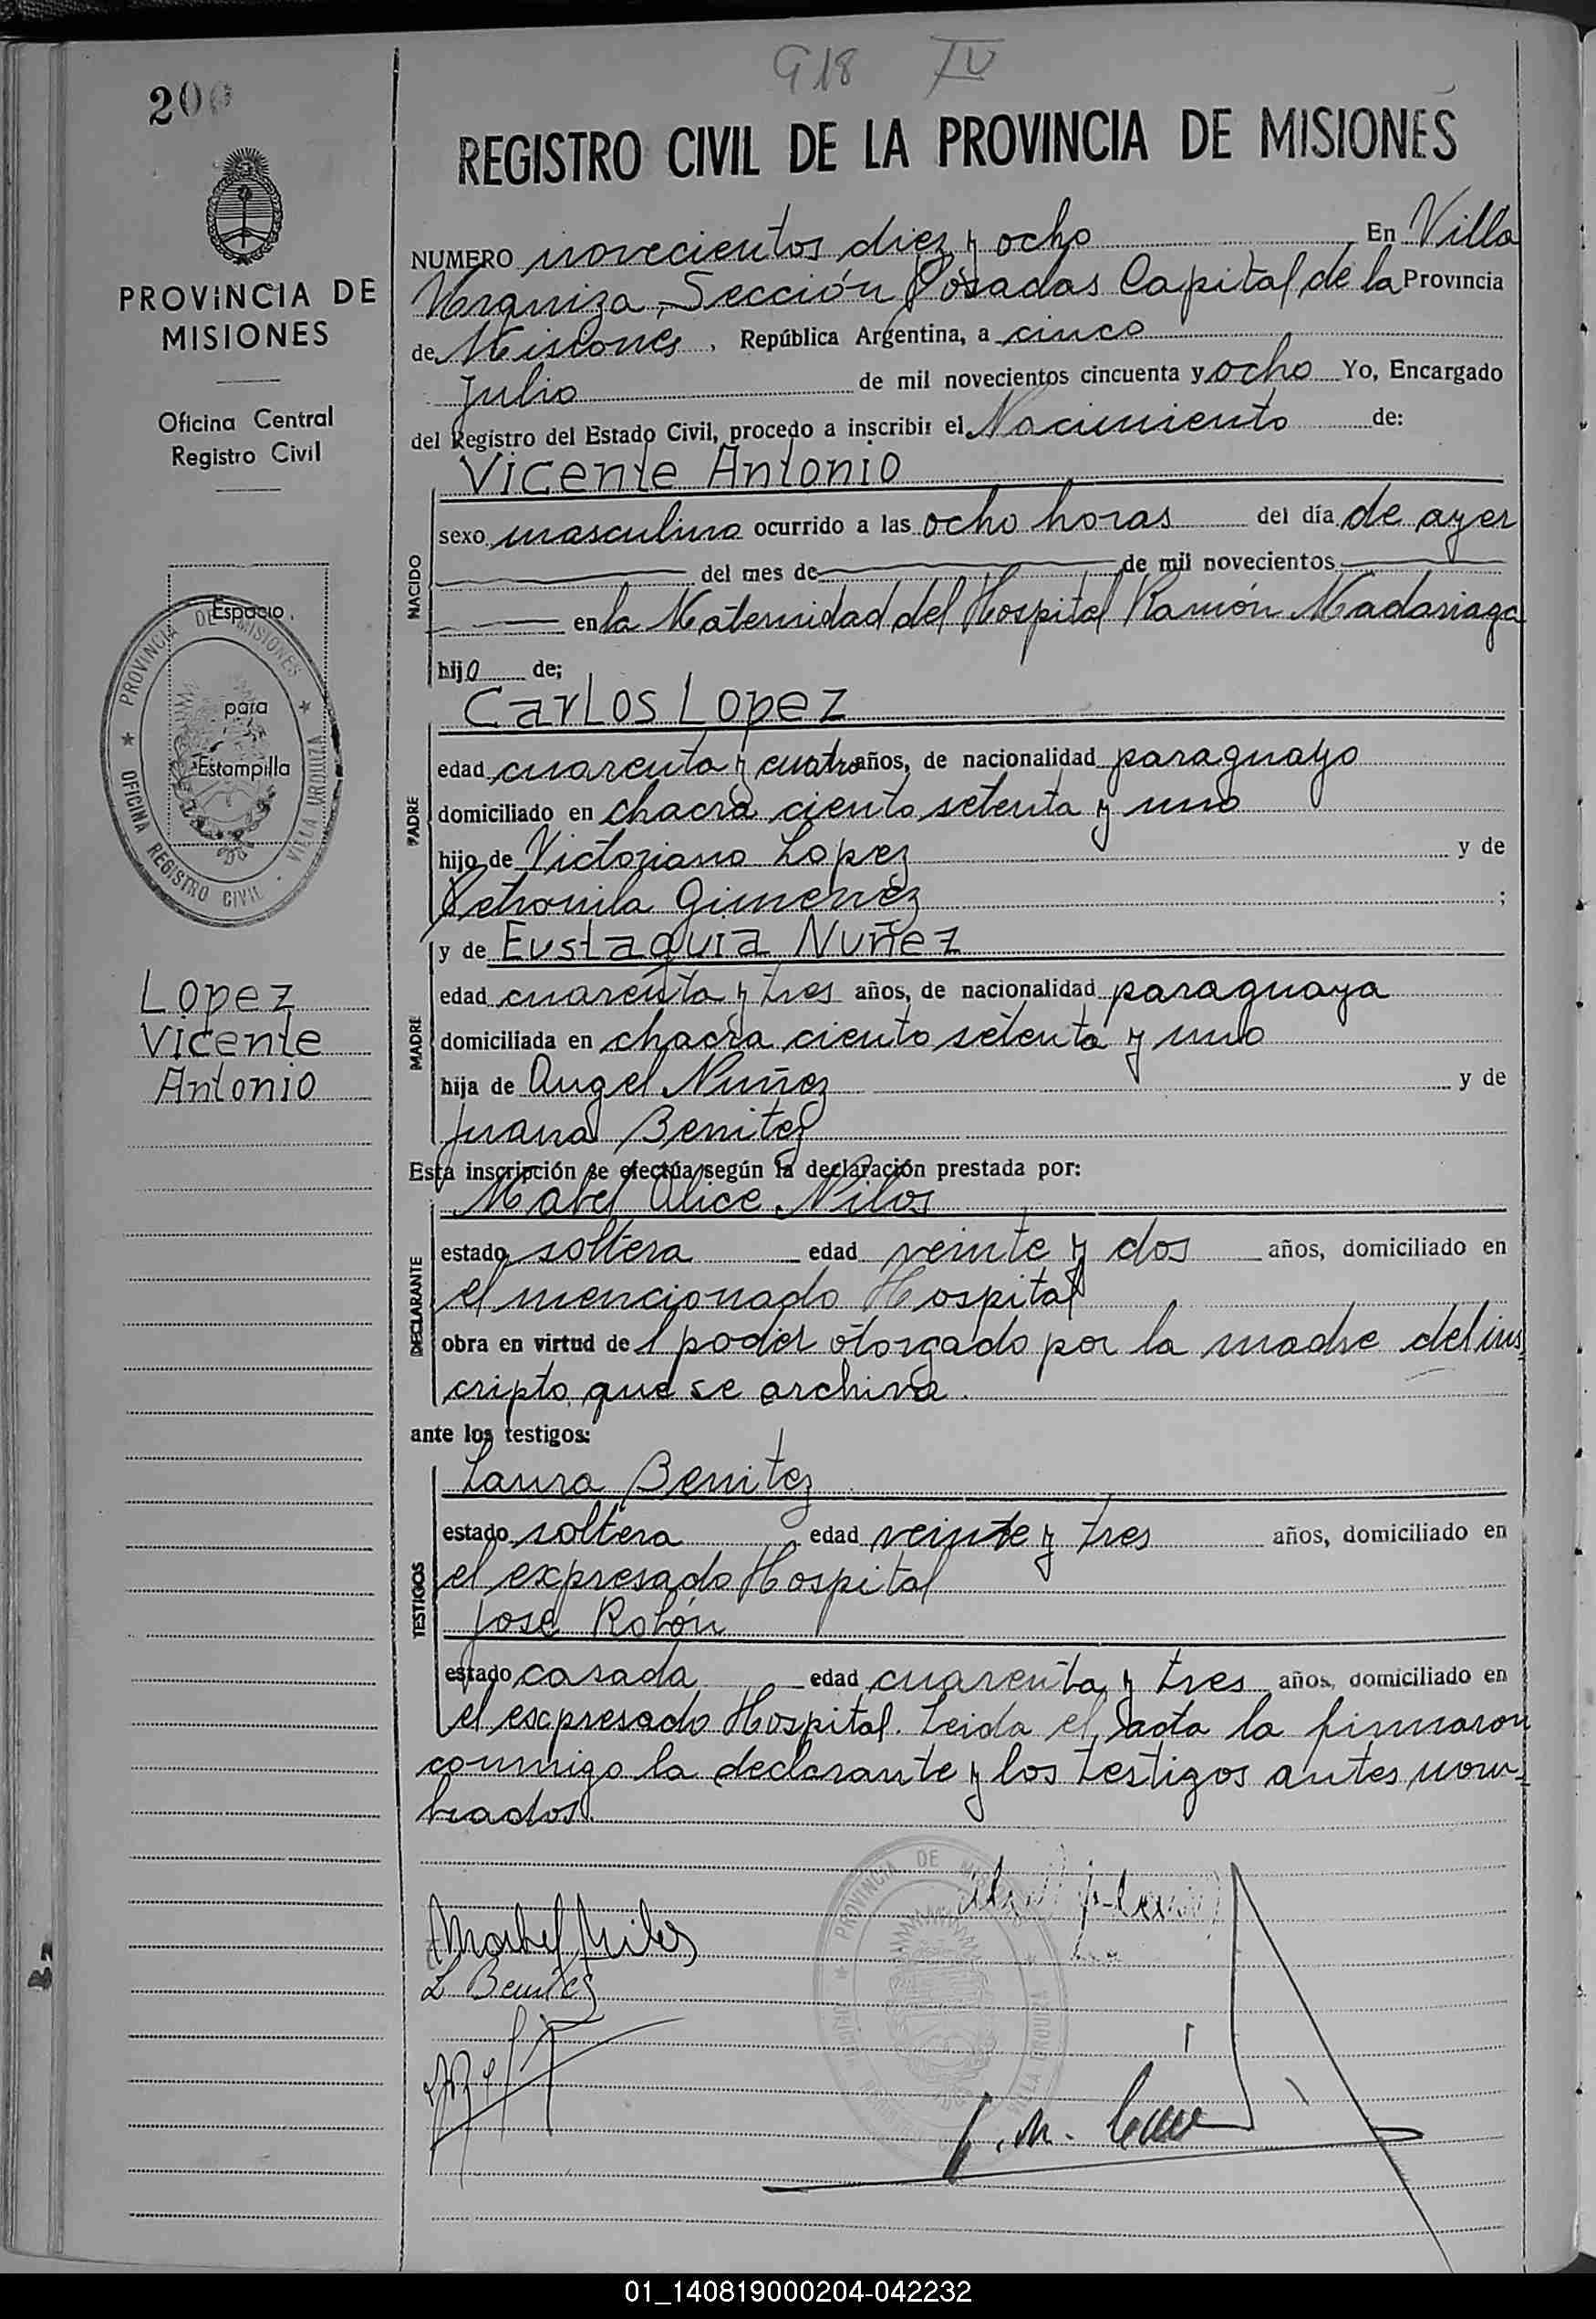 918 IV
REGISTRO CIVIL DE LA PROVINCIA DE MISIONES
NUMERO novecientos diez y ocho En Villa
Urquiza, Sección Posadas Capital de la Provincia
de Misiones, República Argentina, a cinco
Julio de mil novecientos cincuenta y ocho Yo, Encargado
del Registro del Estado Civil, procedo a inscribir el Nacimiento de:
Vicente Antonio
NACIDO
sexo masculino ocurrido a las ocho horas del día de ayer
del mes de de mil novecientos
en la Maternidad del Hospital Ramón Madariaga
hijo de;
Carlos Lopez
PADRE
edad cuarenta y cuatro años, de nacionalidad paraguayo
domiciliado en chacra ciento setenta y uno
hijo de Victoriano Lopez y de
Petronila Gimenez ;
y de Eustaquia Nuñez
MADRE
edad cuarenta y tres años, de nacionalidad paraguaya
domiciliada en chacra ciento setenta y uno
hija de Angel Nuñez y de
Juana Benitez
Esta inscripción se efectúa según la declaración prestada por:
Mabel Alice Nilos
DECLARANTE
estado soltera edad veinte y dos años, domiciliado en
el mencionado Hospital
obra en virtud de l poder otorgado por la madre del ins-
cripto que se archiva.
ante los testigos:
Laura Benitez
TESTIGOS
estado soltera edad veinte y tres años, domiciliado en
el expresado Hospital
Jose Rolón
estado casada edad cuarenta y tres años, domiciliado en
el expresado Hospital. Leida el acta la firmaron
conmigo la declarante y los testigos antes nom-
brados.
L Benitez
200
PROVINCIA DE
MISIONES
Oficina Central
Registro Civil
Espacio
para
Estampilla
PROVINCIA DE MISIONES
OFICINA REGISTRO CIVIL - VILLA URQUIZA
Lopez
Vicente
Antonio
PROVINCIA DE
VILLA URQUIZA
01_140819000204-042232